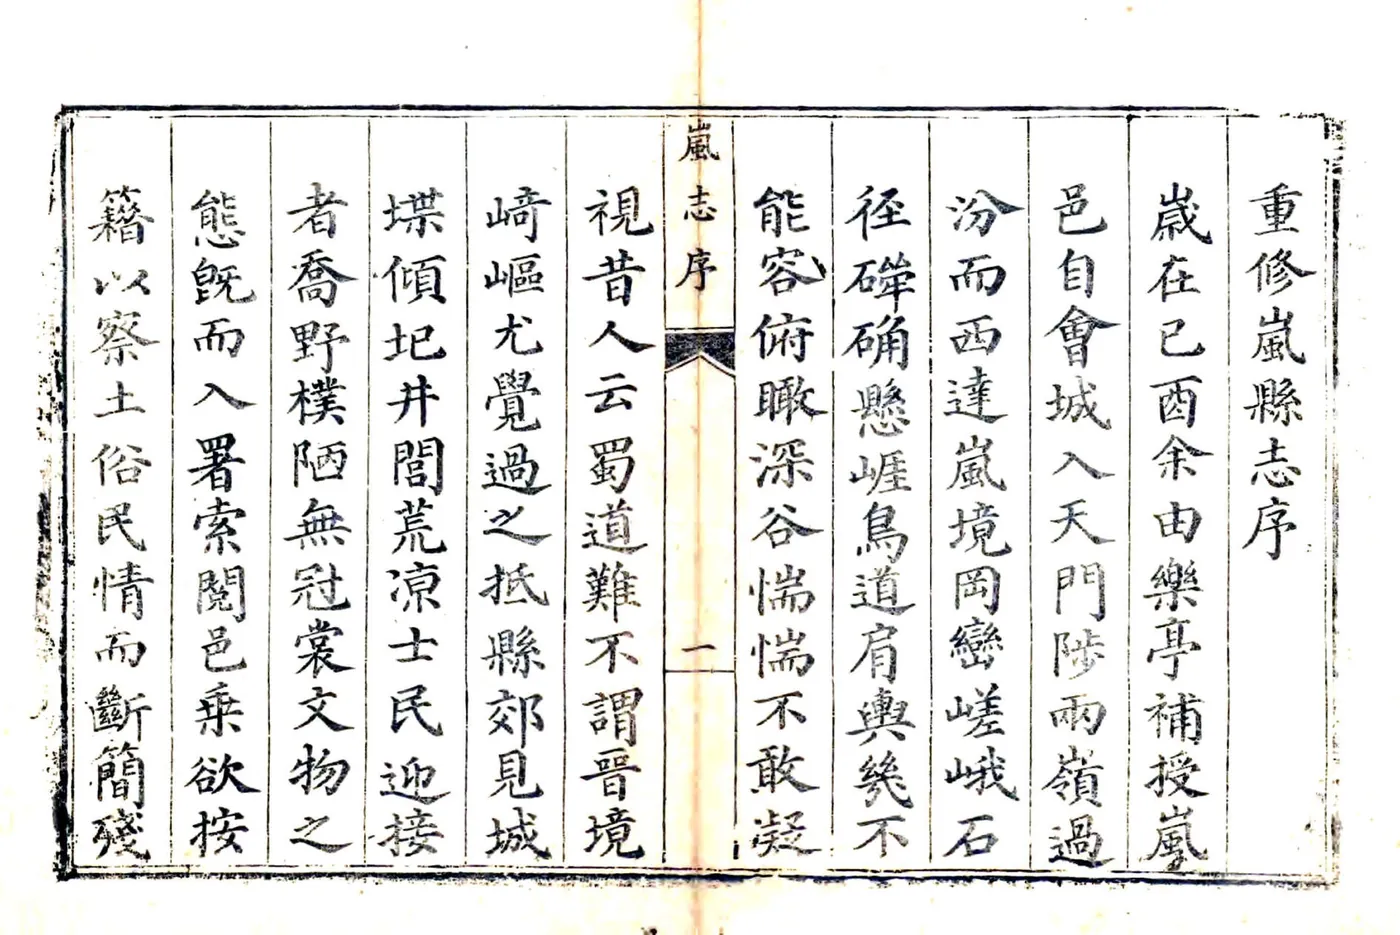 重修嵐縣志序
歲在已酉余由樂亭補授嵐
邑自會城入天門陟兩嶺過
汾而西達嵐境岡巒嵯峨石
徑犖确懸崖鳥道肩輿幾不
能容俯瞰深谷惴惴不敢凝
嵐志序
一
視昔人云蜀道難不謂晉境
崎嶇尤覺過之抵縣郊見城
堞傾圯井閭荒凉士民迎接
者喬野樸陋無冠裳文物之
態旣而入署索閱邑乗欲按
籍以察土俗民情而斷簡殘